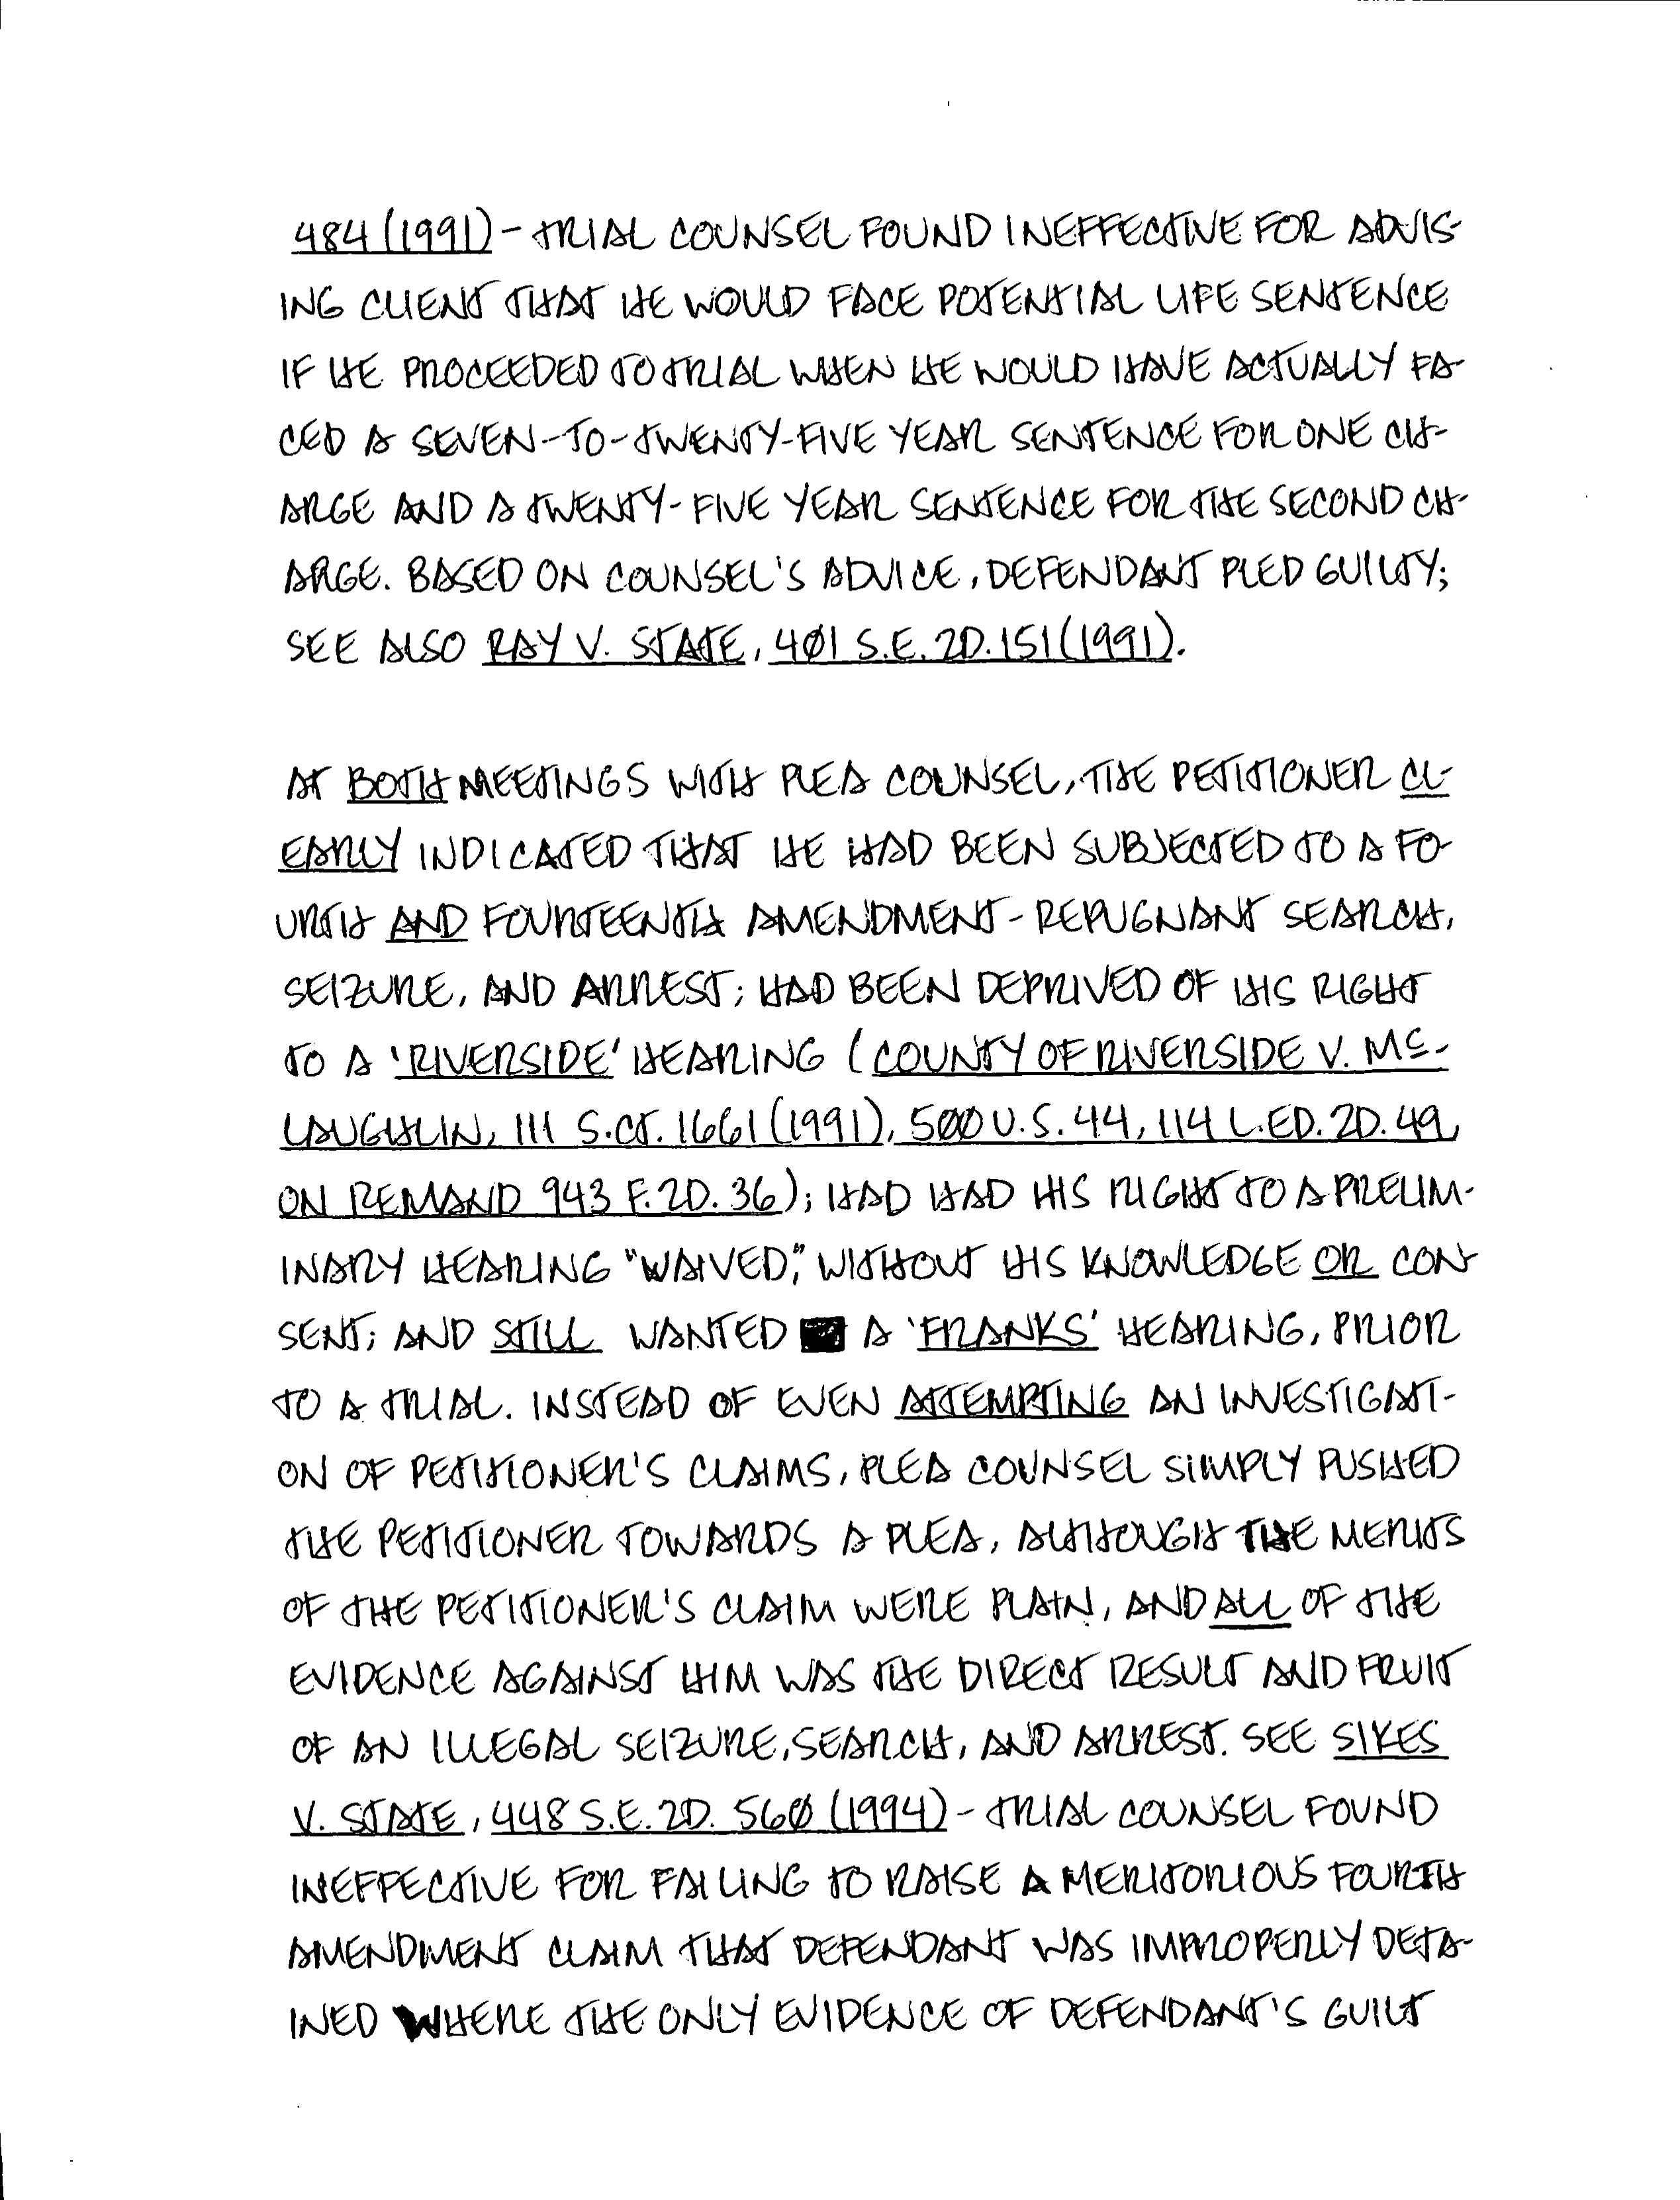 484 (1991) - TRIAL COUNSEL FOUND INEFFECTIVE FOR ADVIS-
ING CLIENT THAT HE WOULD FACE POTENTIAL LIFE SENTENCE
IF HE PROCEEDED TO TRIAL WHEN HE WOULD HAVE ACTUALLY FA-
CED A SEVEN-TO-TWENTY-FIVE YEAR SENTENCE FOR ONE CH-
ARGE AND A TWENTY-FIVE YEAR SENTENCE FOR THE SECOND CH-
ARGE. BASED ON COUNSEL'S ADVICE, DEFENDANT PLED GUILTY;
SEE ALSO RAY V. STATE, 401 S.E. 2D. 151 (1991).
AT BOTH MEETINGS WITH PLEA COUNSEL, THE PETITIONER CL-
EARLY INDICATED THAT HE HAD BEEN SUBJECTED TO A FO-
URTH AND FOURTEENTH AMENDMENT - REPUGNANT SEARCH,
SEIZURE, AND ARREST; HAD BEEN DEPRIVED OF HIS RIGHT
TO A 'RIVERSIDE' HEARING (COUNTY OF RIVERSIDE V. MC-
LAUGHLIN, 111 S.CT. 1661 (1991), 500 U.S. 44, 114 L.ED. 2D. 49,
ON REMAND 943 F. 2D. 36); HAD HAD HIS RIGHT TO A PRELIM-
INARY HEARING "WAIVED," WITHOUT HIS KNOWLEDGE OR CON-
SENT; AND STILL WANTED A 'FRANKS' HEARING, PRIOR
TO A TRIAL. INSTEAD OF EVEN ATTEMPTING AN INVESTIGATI-
ON OF PETITIONER'S CLAIMS, PLEA COUNSEL SIMPLY PUSHED
THE PETITIONER TOWARDS A PLEA, ALTHOUGH THE MERITS
OF THE PETITIONER'S CLAIM WERE PLAIN, AND ALL OF THE
EVIDENCE AGAINST HIM WAS THE DIRECT RESULT AND FRUIT
OF AN ILLEGAL SEIZURE, SEARCH, AND ARREST. SEE SIKES
V. STATE, 448 S.E. 2D. 560 (1994) - TRIAL COUNSEL FOUND
INEFFECTIVE FOR FAILING TO RAISE A MERITORIOUS FOURTH
AMENDMENT CLAIM THAT DEFENDANT WAS IMPROPERLY DETA-
INED WHERE THE ONLY EVIDENCE OF DEFENDANT'S GUILT